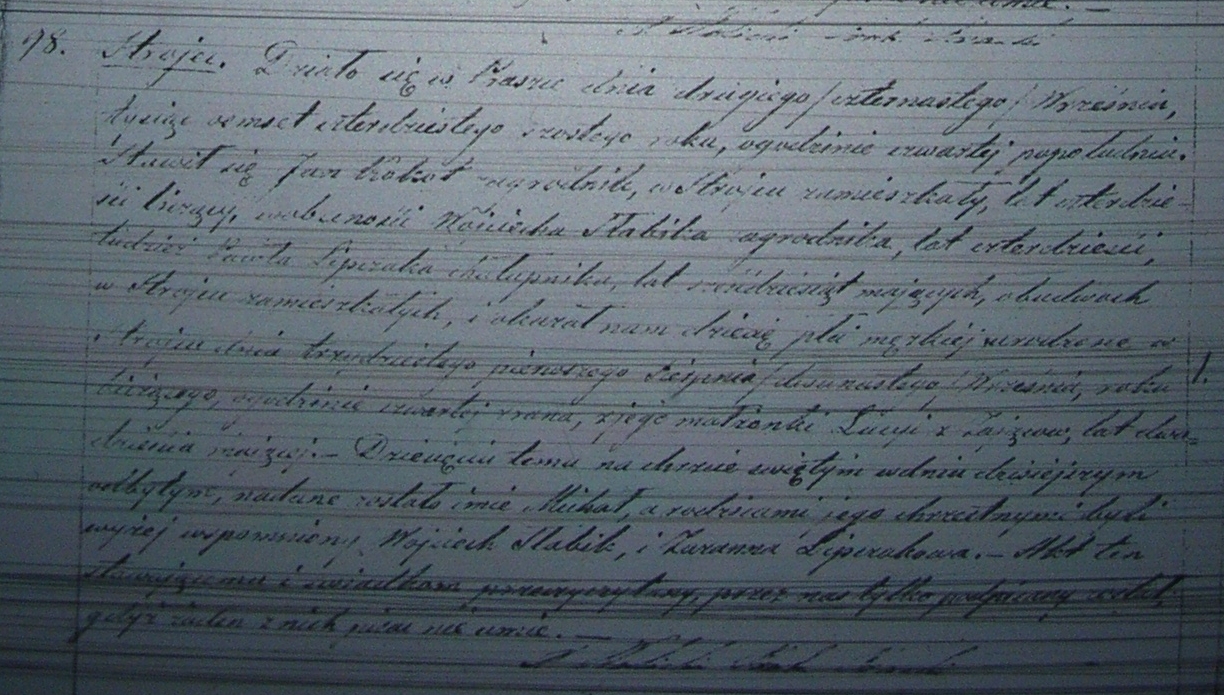 98. Strojec. Działo się w Praszce dnia drugiego /czternastego/ Września,
tysiąc osmset czterdziestego szóstego roku, o godzinie czwartej popołudniu.
Stawił się Jan zagrodnik, w Strojcu zamieszkały, lat czterdzie-
ści liczący, w obecności Wojciecha Słabika zagrodnika, lat czterdzieści,
tudzież Pawła Lipczaka chałupnika, lat sześćdziesiąt mających, obudwóch
w Strojcu zamieszkałych, i okazał nam dziecię płci męzkiej urodzone w
Strojcu dnia trzydziestego pierwszego Sierpnia /dwunastego/ Września, roku 1.
bieżącego, o godzinie czwartej zrana, z jego małżonki Łucyi z lat dwa-
dzieścia mającej.- Dziecięciu temu na chrzcie świętym w dniu dzisiejszym
odbytym, nadane zostało imie Michał, a rodzicami jego chrzestnymi byli
wyżej wspomniony Wojciech Słabik, i Zuzanna Lipczakowa.- Akt ten
stawającemu i świadkom przeczytany, przez nas tylko podpisany został,
gdyż żaden z nich pisać nie umie.-